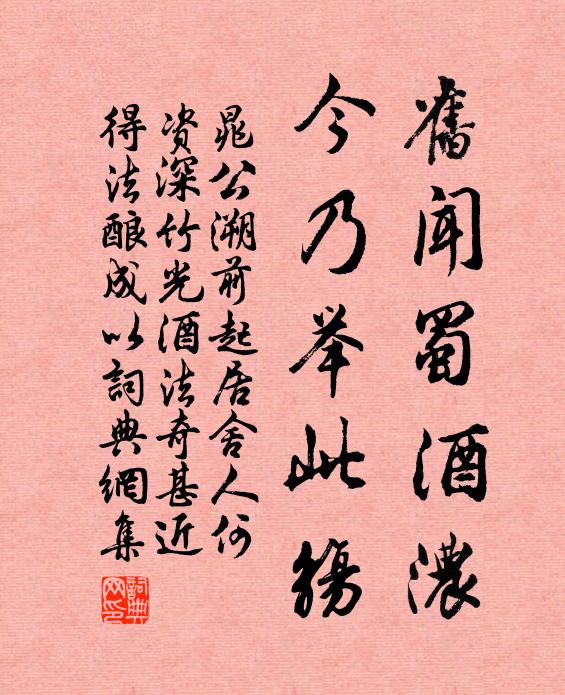 舊闻蜀酒濃
今乃举此觞
晁公溯前起居舍人何
资深竹光酒法奇甚近
得法酿成以詞典網集
詞典網印